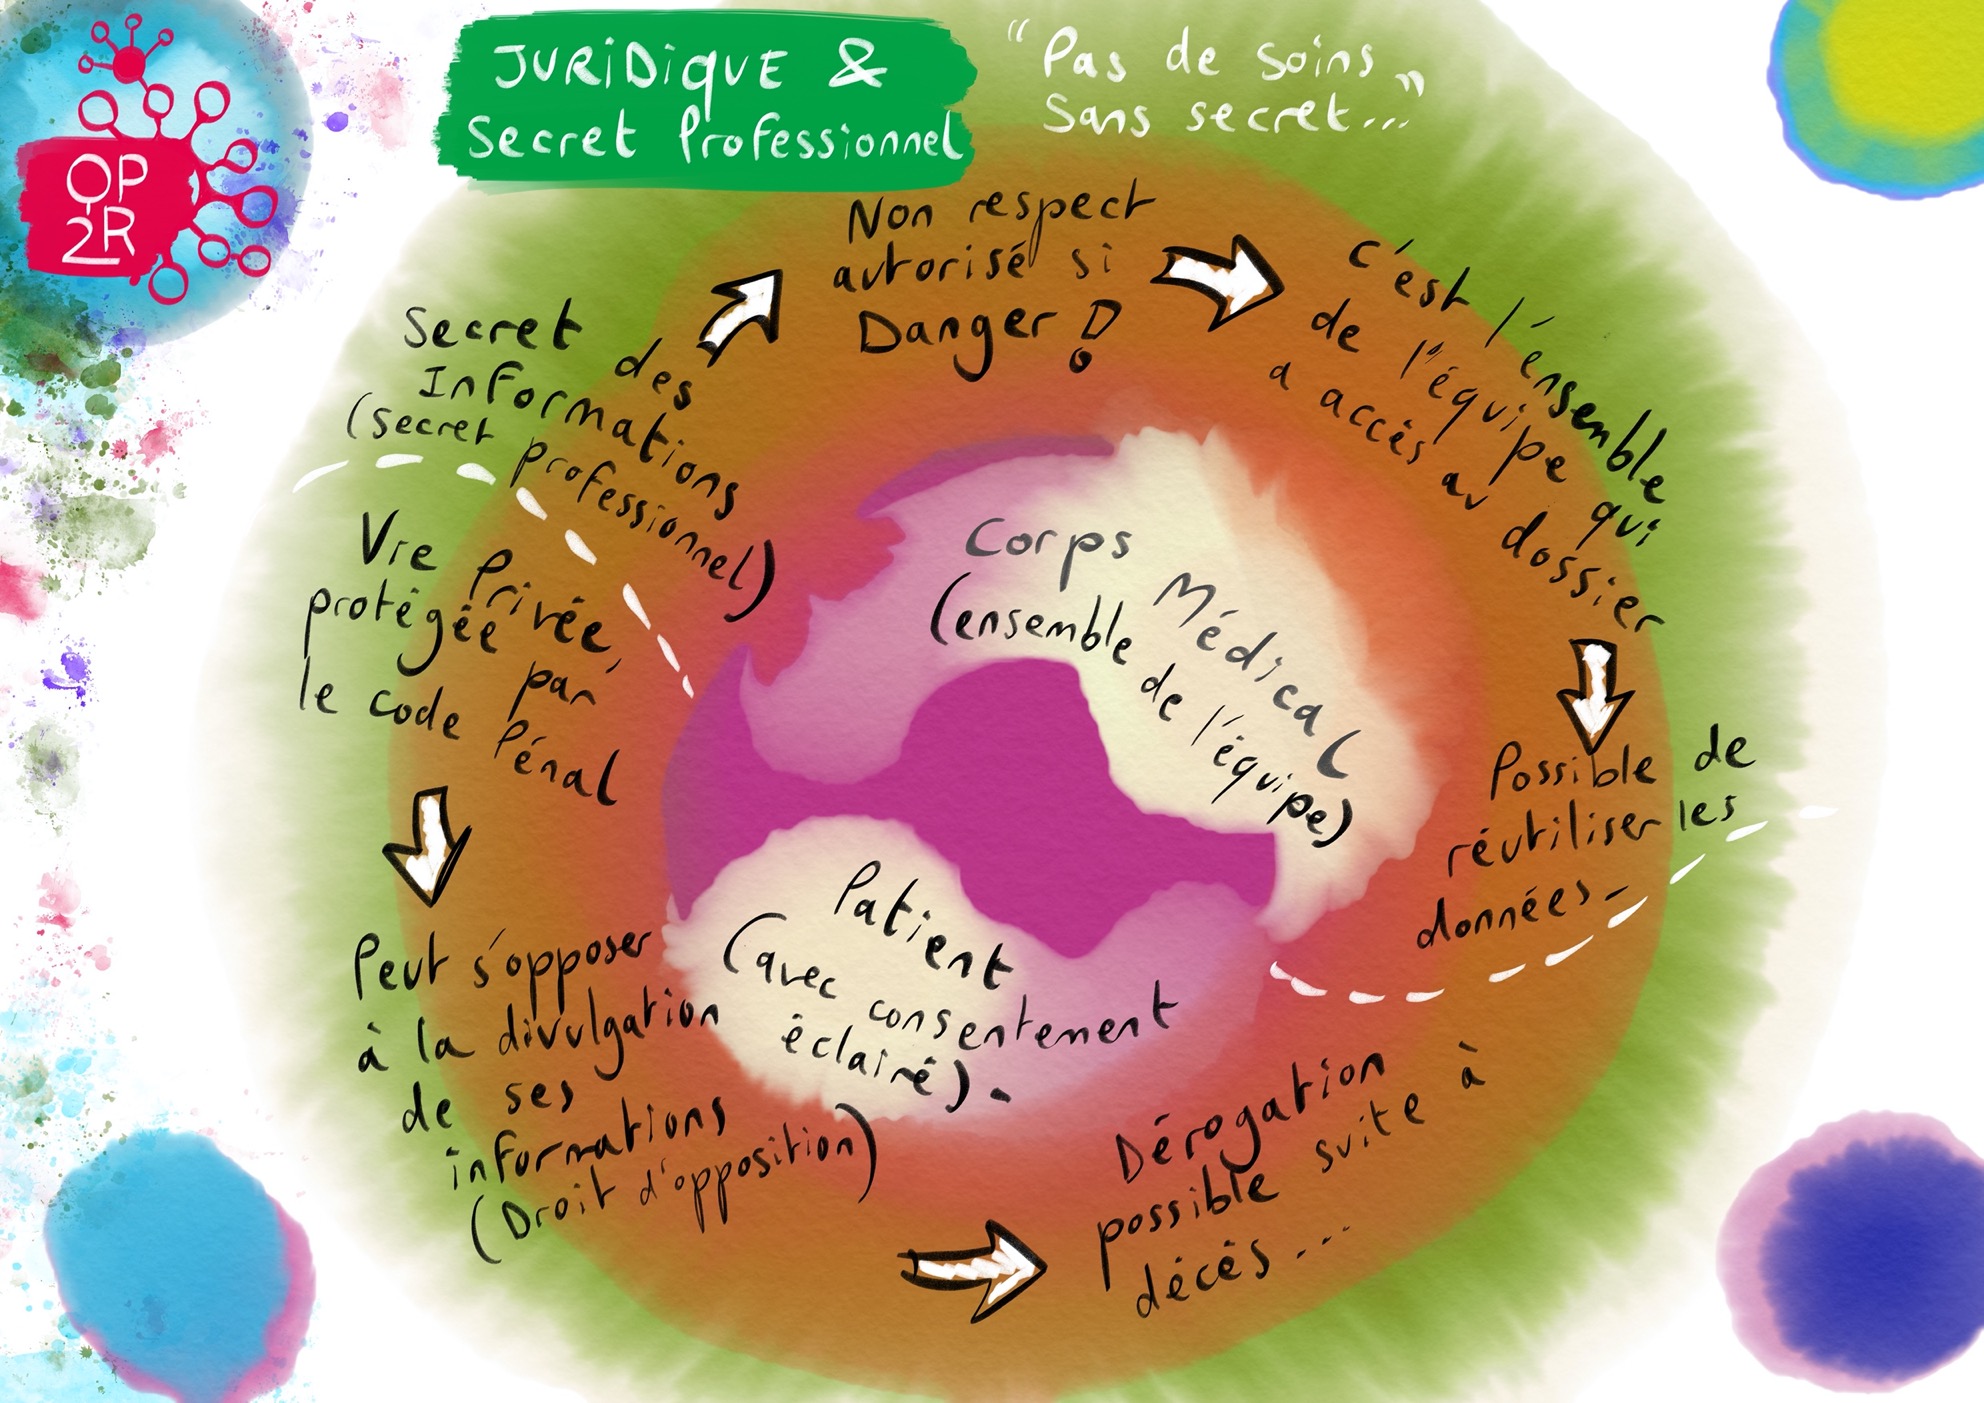 OP
2R
JURiDiqUE &
Secret Professionnel
"Pas de soins
Sans secret..."
Secret des
Informations
(secret professionnel)
Non respect
autorisé si
Danger !
c'est l'ensemble
de l'équipe qui
a accès au dossier
Possible de
réutiliser les
données
Corps Médical
(ensemble de l'équipe)
Vie Privée,
protégée par
le code Pénal
Peut s'opposer
à la divulgation
de ses
informations
(Droit d'opposition)
Patient
(avec consentement
éclairé).
Dérogation
possible suite à
décès...